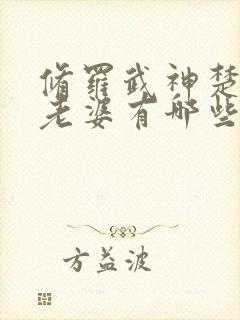 脩羅武神楚
老婆有哪些
方益波